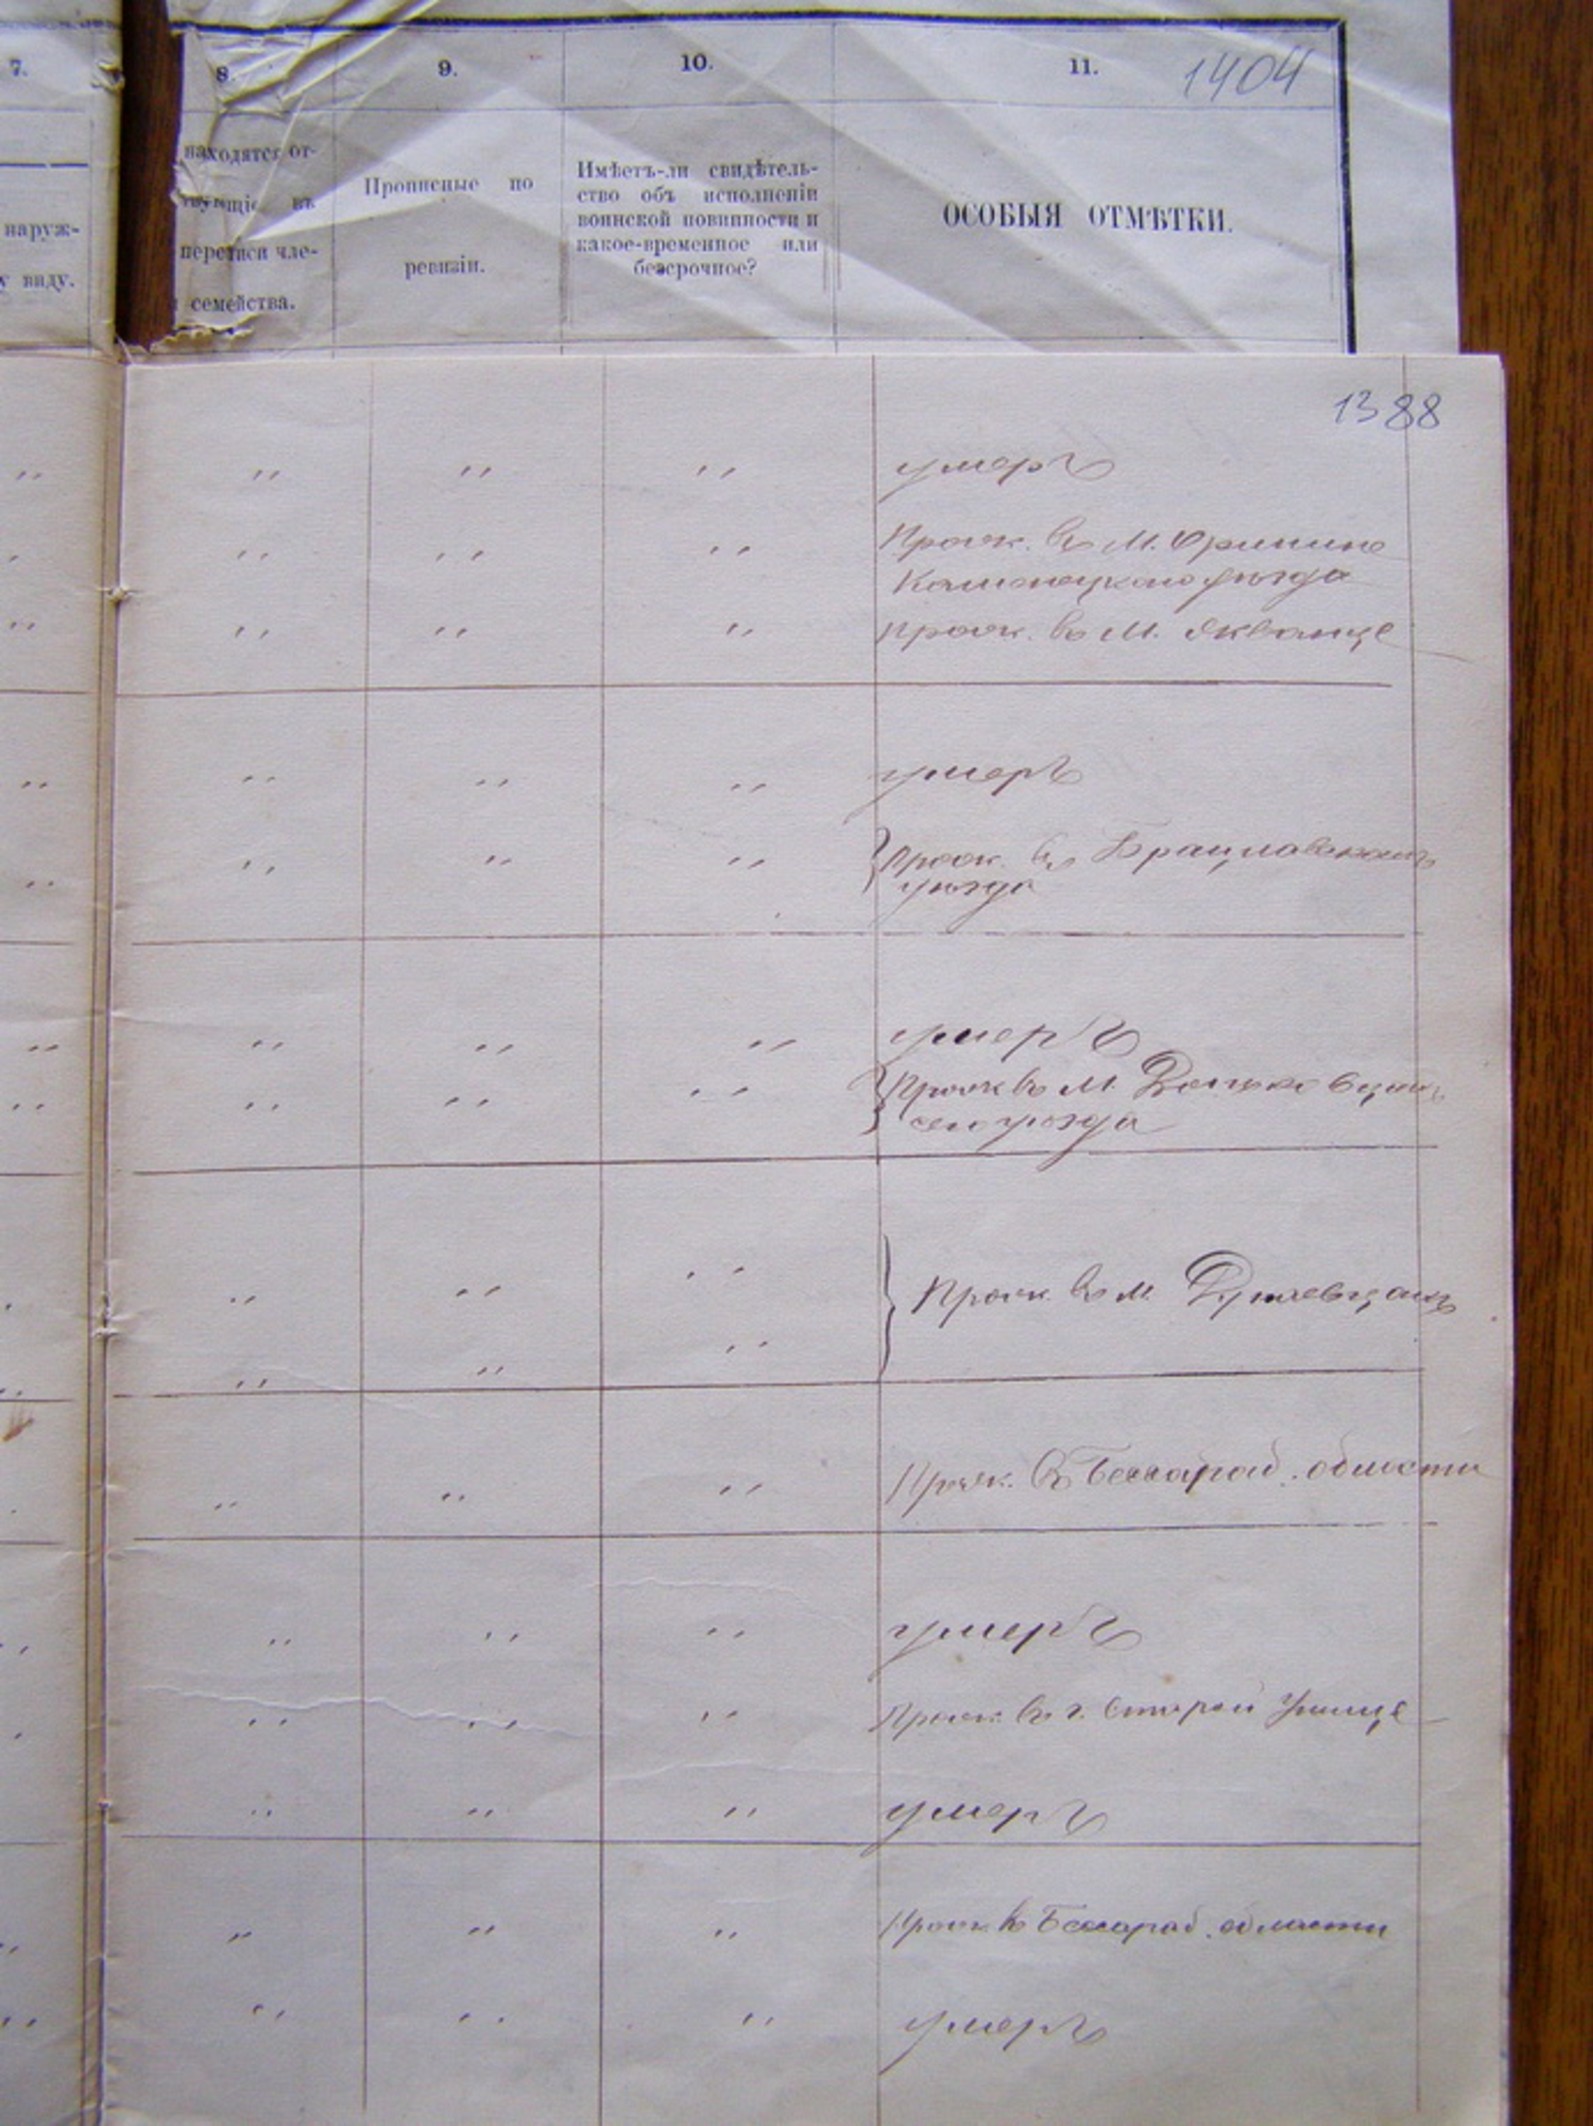 7.
8.
9.
10.
11.
1404
наруж-
у виду.
находятся от-
твующіе въ
переписи чле-
семейства.
Прописные по
ревизіи.
Имѣетъ-ли свидѣтель-
ство объ исполненіи
воинской повинности и
какое-временное или
безсрочное?
ОСОБЫЯ ОТМѢТКИ.
1388
умеръ
Прож. въ М. Оринино
Каменецкаго уѣзда
прож. въ М. Жванце
умеръ
прож. въ Брацлавскомъ
уѣзда
умеръ
Прож въ М.
сего уѣзда
Прож. въ м. Дунаевцахъ
Прож. въ Бессараб. области
умеръ
Прож. въ г. Старой Ушице
умеръ
Прож. въ Бессараб. области
умеръ